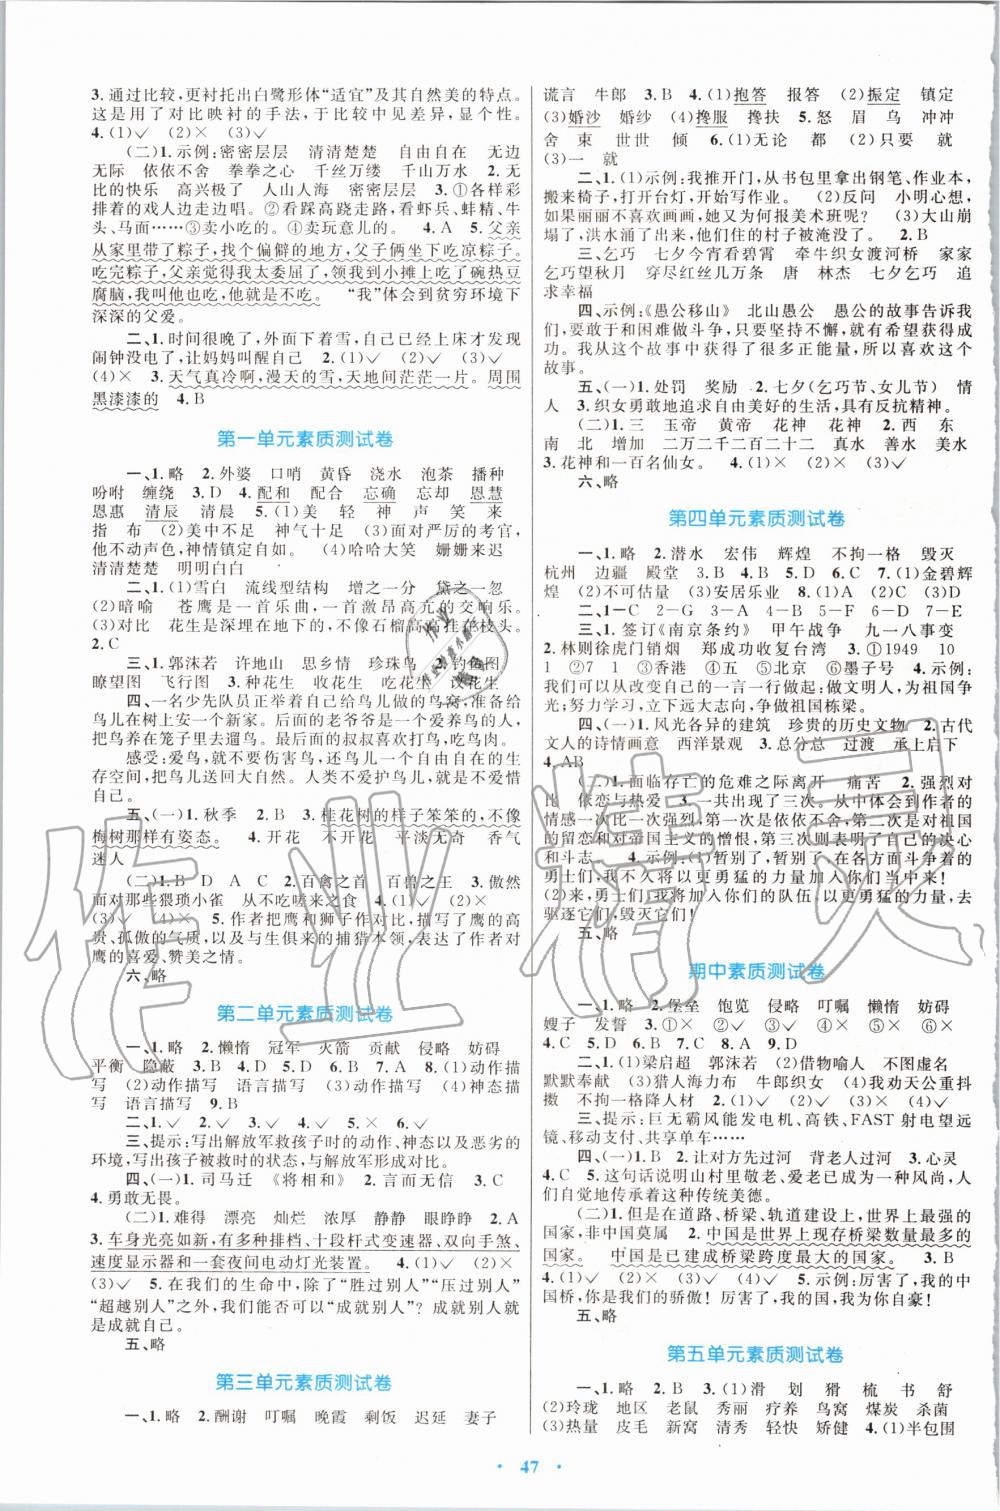 3.通过比较,更衬托出白鹭形体“适宜”及其自然美的特点。
这是用了对比映衬的手法,于比较中见差异,显个性。
4.(1)✓ (2)× (3)✓
(二)1.示例:密密层层 清清楚楚 自由自在 无边
无际 依依不舍 拳拳之心 千丝万缕 千山万水 2.无
比的快乐 高兴极了 人山人海 密密层层 3.①各样彩
排着的戏人边走边唱。②看踩高跷走路,看虾兵、蚌精、牛
头、马面……③卖小吃的。④卖玩意儿的。 4.A 5.父亲
从家里带了粽子,找个偏僻的地方,父子俩坐下吃凉粽子。
吃完粽子,父亲觉得我太委屈了,领我到小摊上吃了碗热豆
腐脑,我叫他也吃,他就是不吃。 “我”体会到贫穷环境下
深深的父爱。
二、1.时间很晚了,外面下着雪,自己已经上床才发现
闹钟没电了,让妈妈叫醒自己 2.(1)✓ (2)✓ (3)✓
(4)× 3.天气真冷啊,漫天的雪,天地间茫茫一片。周围
黑漆漆的 4.B
第一单元素质测试卷
一、1.略 2.外婆 口哨 黄昏 浇水 泡茶 播种
吩咐 缠绕 3.D 4.配和 配合 忘确 忘却 恩慧
恩惠 清辰 清晨 5.(1)美 轻 神 声 笑 来
指 布 (2)美中不足 神气十足 (3)面对严厉的考官,
他不动声色,神情镇定自如。 (4)哈哈大笑 姗姗来迟
清清楚楚 明明白白
二、1.(1)雪白 流线型结构 增之一分 黛之一忽
(2)暗喻 苍鹰是一首乐曲,一首激昂高亢的交响乐。
(3)对比 花生是深埋在地下的,不像石榴高高挂在枝头。
2.C
三、1.郭沫若 许地山 思乡情 珍珠鸟 2.钓鱼图
瞭望图 飞行图 3.种花生 收花生 吃花生 议花生
四、一名少先队员正举着自己给鸟儿做的鸟窝,准备给
鸟儿在树上安一个新家。后面的老爷爷是一个爱养鸟的人,
把鸟养在笼子里来遛鸟。后面的叔叔喜欢打鸟,吃鸟肉。
感受:爱鸟,就不要伤害鸟,还鸟儿一个自由自在的生
存空间,把鸟儿送回大自然。人类不爱护鸟儿,就是不爱惜
自己。
五、(一)1.秋季 2.B 3.桂花树的样子笨笨的,不像
梅树那样有姿态。 4.开花 不开花 平淡无奇 香气
迷人
(二)1.B D A C 2.百禽之首 百兽之王 3.傲然
面对那些猥琐小雀 从不吃嗟来之食 4.(1)✓ (2)×
(3)✓ (4)✓ 5.作者把鹰和狮子作对比,描写了鹰的高
贵、孤傲的气质,以及与生俱来的捕猎本领,表达了作者对
鹰的喜爱、赞美之情。
六、略
第二单元素质测试卷
一、1.略 2.懒惰 冠军 火箭 贡献 侵略 妨碍
平衡 隐蔽 3.B 4.D 5.D 6.B 7.A 8.(1)动作描
写 (2)动作描写 语言描写 (3)动作描写 (4)神态描
写 语言描写 9.B
二、1.✓ 2.✓ 3.✓ 4.✓ 5.× 6.✓
三、提示:写出解放军救孩子时的动作、神态以及恶劣的
环境,写出孩子被救时的表情,与解放军形成对比。
四、(一)1.司马迁 《将相和》 2.言而无信 3.C
4.勇敢无畏。
(二)1.难得 漂亮 灿烂 浓厚 静静 眼睁睁 2.A
3.车身光亮如新,有多种排档、十段杆式变速器、双向手煞、
速度显示器和一套夜间电动灯光装置。 4.(1)✓ (2)×
(3)✓ 5.在我们的生命中,除了“胜过别人”“压过别人”
“超越别人”之外,我们能否可以“成就别人”? 成就别人就
是成就自己。
五、略
第三单元素质测试卷
一、1.略 2.酬谢 叮嘱 晚霞 剩饭 迟延 妻子
谎言 牛郎 3.B 4.(1)抱答 报答 (2)振定 镇定
(3)婚沙 婚纱 (4)搀服 搀扶 5.怒 眉 乌 冲冲
舍 束 世世 倾 6.(1)无论 都 (2)只要 就
(3)一 就
二、1.(1)示例:我推开门,从书包里拿出钢笔、作业本,
搬来椅子,打开台灯,开始写作业。 (2)反问 小明心想,
如果丽丽不喜欢画画,又为何报美术班呢? (3)大山崩
塌了,洪水涌了出来,他们住的村子被淹没了。 2.B
三、乞巧 七夕今宵看碧霄 牵牛织女渡河桥 家家
乞巧望秋月 穿尽红丝几万条 唐 林杰 七夕乞巧 追
求幸福
四、示例:《愚公移山》 北山愚公 愚公的故事告诉我
们,要敢于和困难做斗争,只要坚持不懈,就有希望获得成
功。我从这个故事中获得了很多正能量,所以喜欢这个
故事。
五、(一)1.处罚 奖励 2.七夕(乞巧节、女儿节) 情
人 3.织女勇敢地追求自由美好的生活,具有反抗精神。
(二)1.三 玉帝 黄帝 花神 花神 2.西 东
南 北 增加 二万二千二百二十二 真水 善水 美水
3.花神和一百名仙女。 4.(1)× (2)× (3)✓
六、略
第四单元素质测试卷
一、1.略 2.潜水 宏伟 辉煌 不拘一格 毁灭
杭州 边疆 殿堂 3.B 4.B 5.D 6.C 7.(1)金碧辉
煌 (2)不可估量 (3)安居乐业 8.(1)A (2)C
二、1-C 2-G 3-A 4-F 5-B 6-D 7-E
三、1.签订《南京条约》 甲午战争 九一八事变
2.林则徐虎门销烟 郑成功收复台湾 3.①1949 10
1 ②7 1 ③香港 ④五 ⑤北京 ⑥墨子号 4.示例:
我们可以从改变自己的一言一行做起:做文明人,为祖国争
光;努力学习,立下远大志向,争做祖国栋梁。
四、(一)1.风光各异的建筑 珍贵的历史文物 2.古代
文人的诗情画意 西洋景观 3.总分总 过渡 承上启下
4.AB
(二)1.面临存亡的危难之际离开 痛苦 2.强烈对
比 依恋与热爱 3.一共出现了三次。从中体会到作者的
情感一次比一次强烈。第一次是依依不舍,第二次是对祖国
的留恋和对帝国主义的憎恨,第三次则表明了自己的决心
和斗志。 4.示例:(1)暂别了,暂别了,各方面斗争着的
勇士们,我不久将以更勇猛的力量加入你们当中来!
(2)来,勇士们,我将加入你们的队伍,以更勇猛的力量,去
驱逐它们,毁灭它们!
五、略
期中素质测试卷
一、1.略 2.堡垒 饱览 侵略 叮嘱 懒惰 妨碍
嫂子 发誓 3.①× ②✓ ③✓ ④✓ ⑤× ⑥×
4.C 5.D 6.B 7.C 8.A 9.D
二、1.(1)梁启超 郭沫若 (2)借物喻人 不图虚名
默默奉献 (3)猎人海力布 牛郎织女 (4)我劝天公重抖
擞 不拘一格降人材 2.(1)✓ (2)✓ (3)× (4)✓
三、提示:巨无霸风能发电机、高铁、FAST射电望远
镜、移动支付、共享单车……
四、(一)1.B 2.让对方先过河 背老人过河 3.心灵
4.C 5.这句话说明山村里敬老、爱老已成为一种风尚,人
们自觉地传承着这种传统美德。
(二)1.但是在道路、桥梁、轨道建设上,世界上最强的
国家,非中国莫属。 2.中国是世界上现存桥梁数量最多的
国家。 中国是已建成桥梁跨度最大的国家。 3.B
4.(1)✓ (2)× (3)✓ 5.示例:厉害了,我的中
国桥,你是我们的骄傲! 厉害了,我的中国,我为你自豪!
五、略
第五单元素质测试卷
一、1.略 2.A 3.(1)滑 划 猾 梳 书 舒
(2)玲珑 地区 老鼠 秀丽 疗养 鸟窝 煤炭 杀菌
(3)热量 皮毛 新窝 清秀 轻快 矫健 4.(1)半包围
· 47 ·
作业精灵